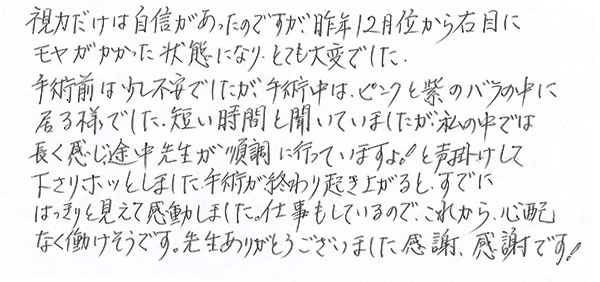 視力だけは自信があったのですが、昨年12月位から右目に
モヤがかかった状態になり、とても大変でした。
手術前は少し不安でしたが、手術中は、ピンクと紫のバラの中に
居る様でした。短い時間と聞いていましたが、私の中では
長く感じ途中先生が"順調に行っていますよ!と声掛けして
下さりホッとしました。手術が終わり起き上がると、すでに
はっきりと見えて感動しました。仕事もしているので、これから、心配
なく働けそうです。先生ありがとうございました感謝、感謝です!